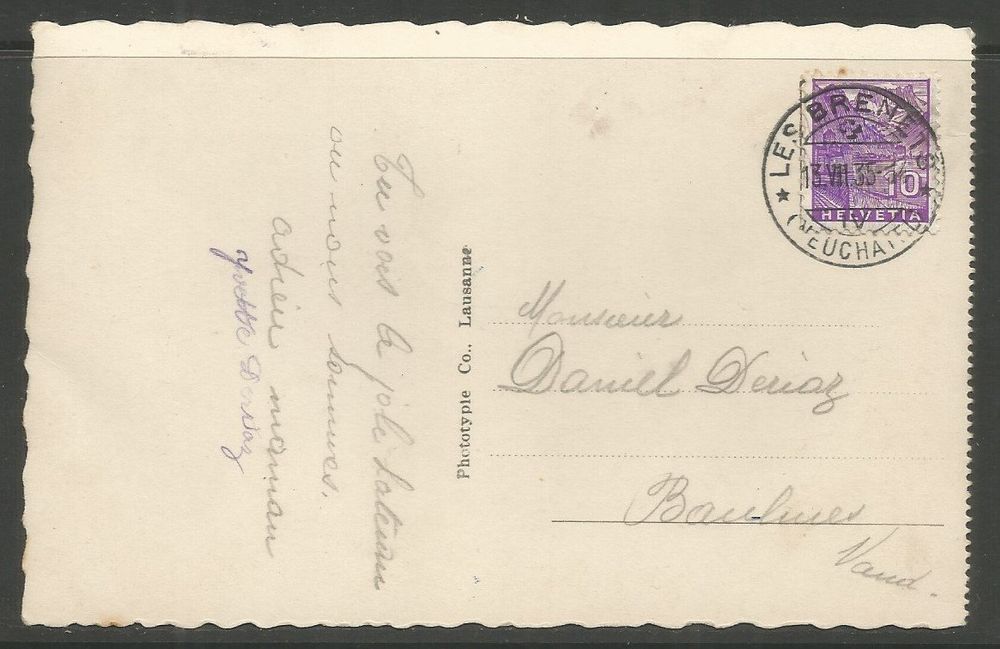 Tu vois le joli bateau
ou nous sommes.
adieu maman
Yvette Deriaz
Phototypie Co., Lausanne
LES BRENETS
13.VII.35-14
10
HELVETIA
IV
(NEUCHATEL)
Monsieur
Daniel Deriaz
Baulmes
Vaud.